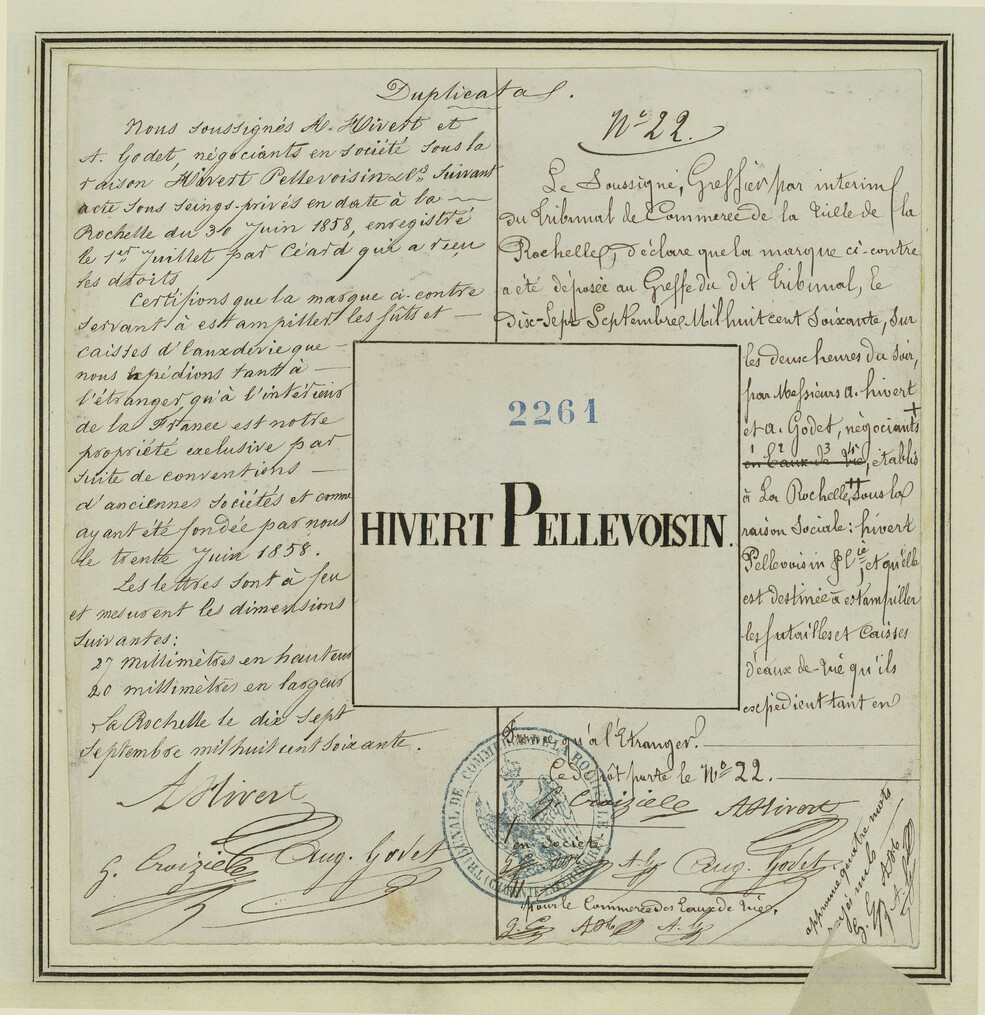 Duplicata.
Nous soussignés A. Hivert et
A. Godet, négociants en société sous la
raison Hivert Pellevoisin & Cie Suivant
acte sous seings-privés en date à la
Rochelle du 30 Juin 1858, enregistré
le 1er Juillet par Céard qui a reçu
les droits
Certifions que la marque ci-contre
servant à estampiller les fûts et
caisses d'eaux de vie que
nous expédions tant à
l'étranger qu'à l'intérieur
de la France est notre
propriété exclusive par
suite de conventions
d'anciennes sociétés et comme
ayant été fondée par nous
le trente Juin 1858.
Les lettres sont à feu
et mesurent les dimensions
suivantes:
27 millimètres en hauteur
20 millimètres en largeur
La Rochelle le dix sept
septembre mil huit cent soixante.
A Hivert
G. Croiziele Aug. Godet
No 22.
Le Soussigné, Greffier par interim
du Tribunal de Commerce de la Ville de la
Rochelle, déclare que la marque ci-contre
a été déposée au Greffe du dit Tribunal, le
Dix-Sept Septembre Mil huit cent soixante, sur
les deux heures du soir,
par Messieurs A. hivert
et A. Godet, négociants +
en Eaux de Vie, établis
à La Rochelle, ++ sous la
raison sociale: hivert
Pellevoisin & Cie, et qu'elle
est destinée à estampiller
les futailles et Caisses
d'eaux-de-vie qu'ils
expédient tant en
France qu'à l'Etranger.
Ce dépôt porte le No 22.
G. Croiziele A Hivert
en société
A. G. Aug. Godet
pour le Commerce des Eaux de Vie,
A. G.
approuvé quatre mots
rayés nuls
2261
HIVERT PELLEVOISIN.
TRIBUNAL DE COMMERCE DE LA ROCHELLE
(CHARENTE INFERIEURE)